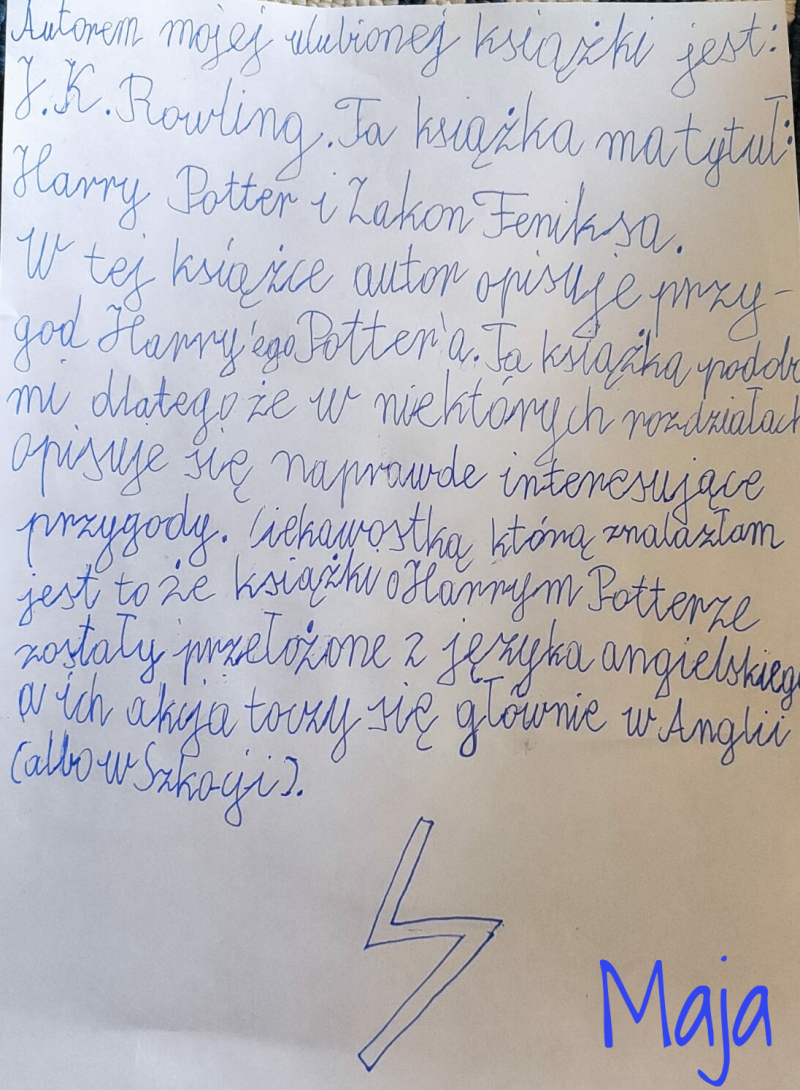 Autorem mojej ulubionej książki jest:
J.K. Rowling. Ta książka ma tytuł:
Harry Potter i Zakon Feniksa.
W tej książce autor opisuje przy-
god Harry'ego Potter'a. Ta książka podoba
mi dlatego że w niektórych rozdziałach
opisuje się naprawde interesujące
przygody. Ciekawostką którą znalazłam
jest to że książki o Harrym Potterze
zostały przełożone z języka angielskiego
a ich akcja toczy się głównie w Anglii
(albo w Szkocji).
Maja